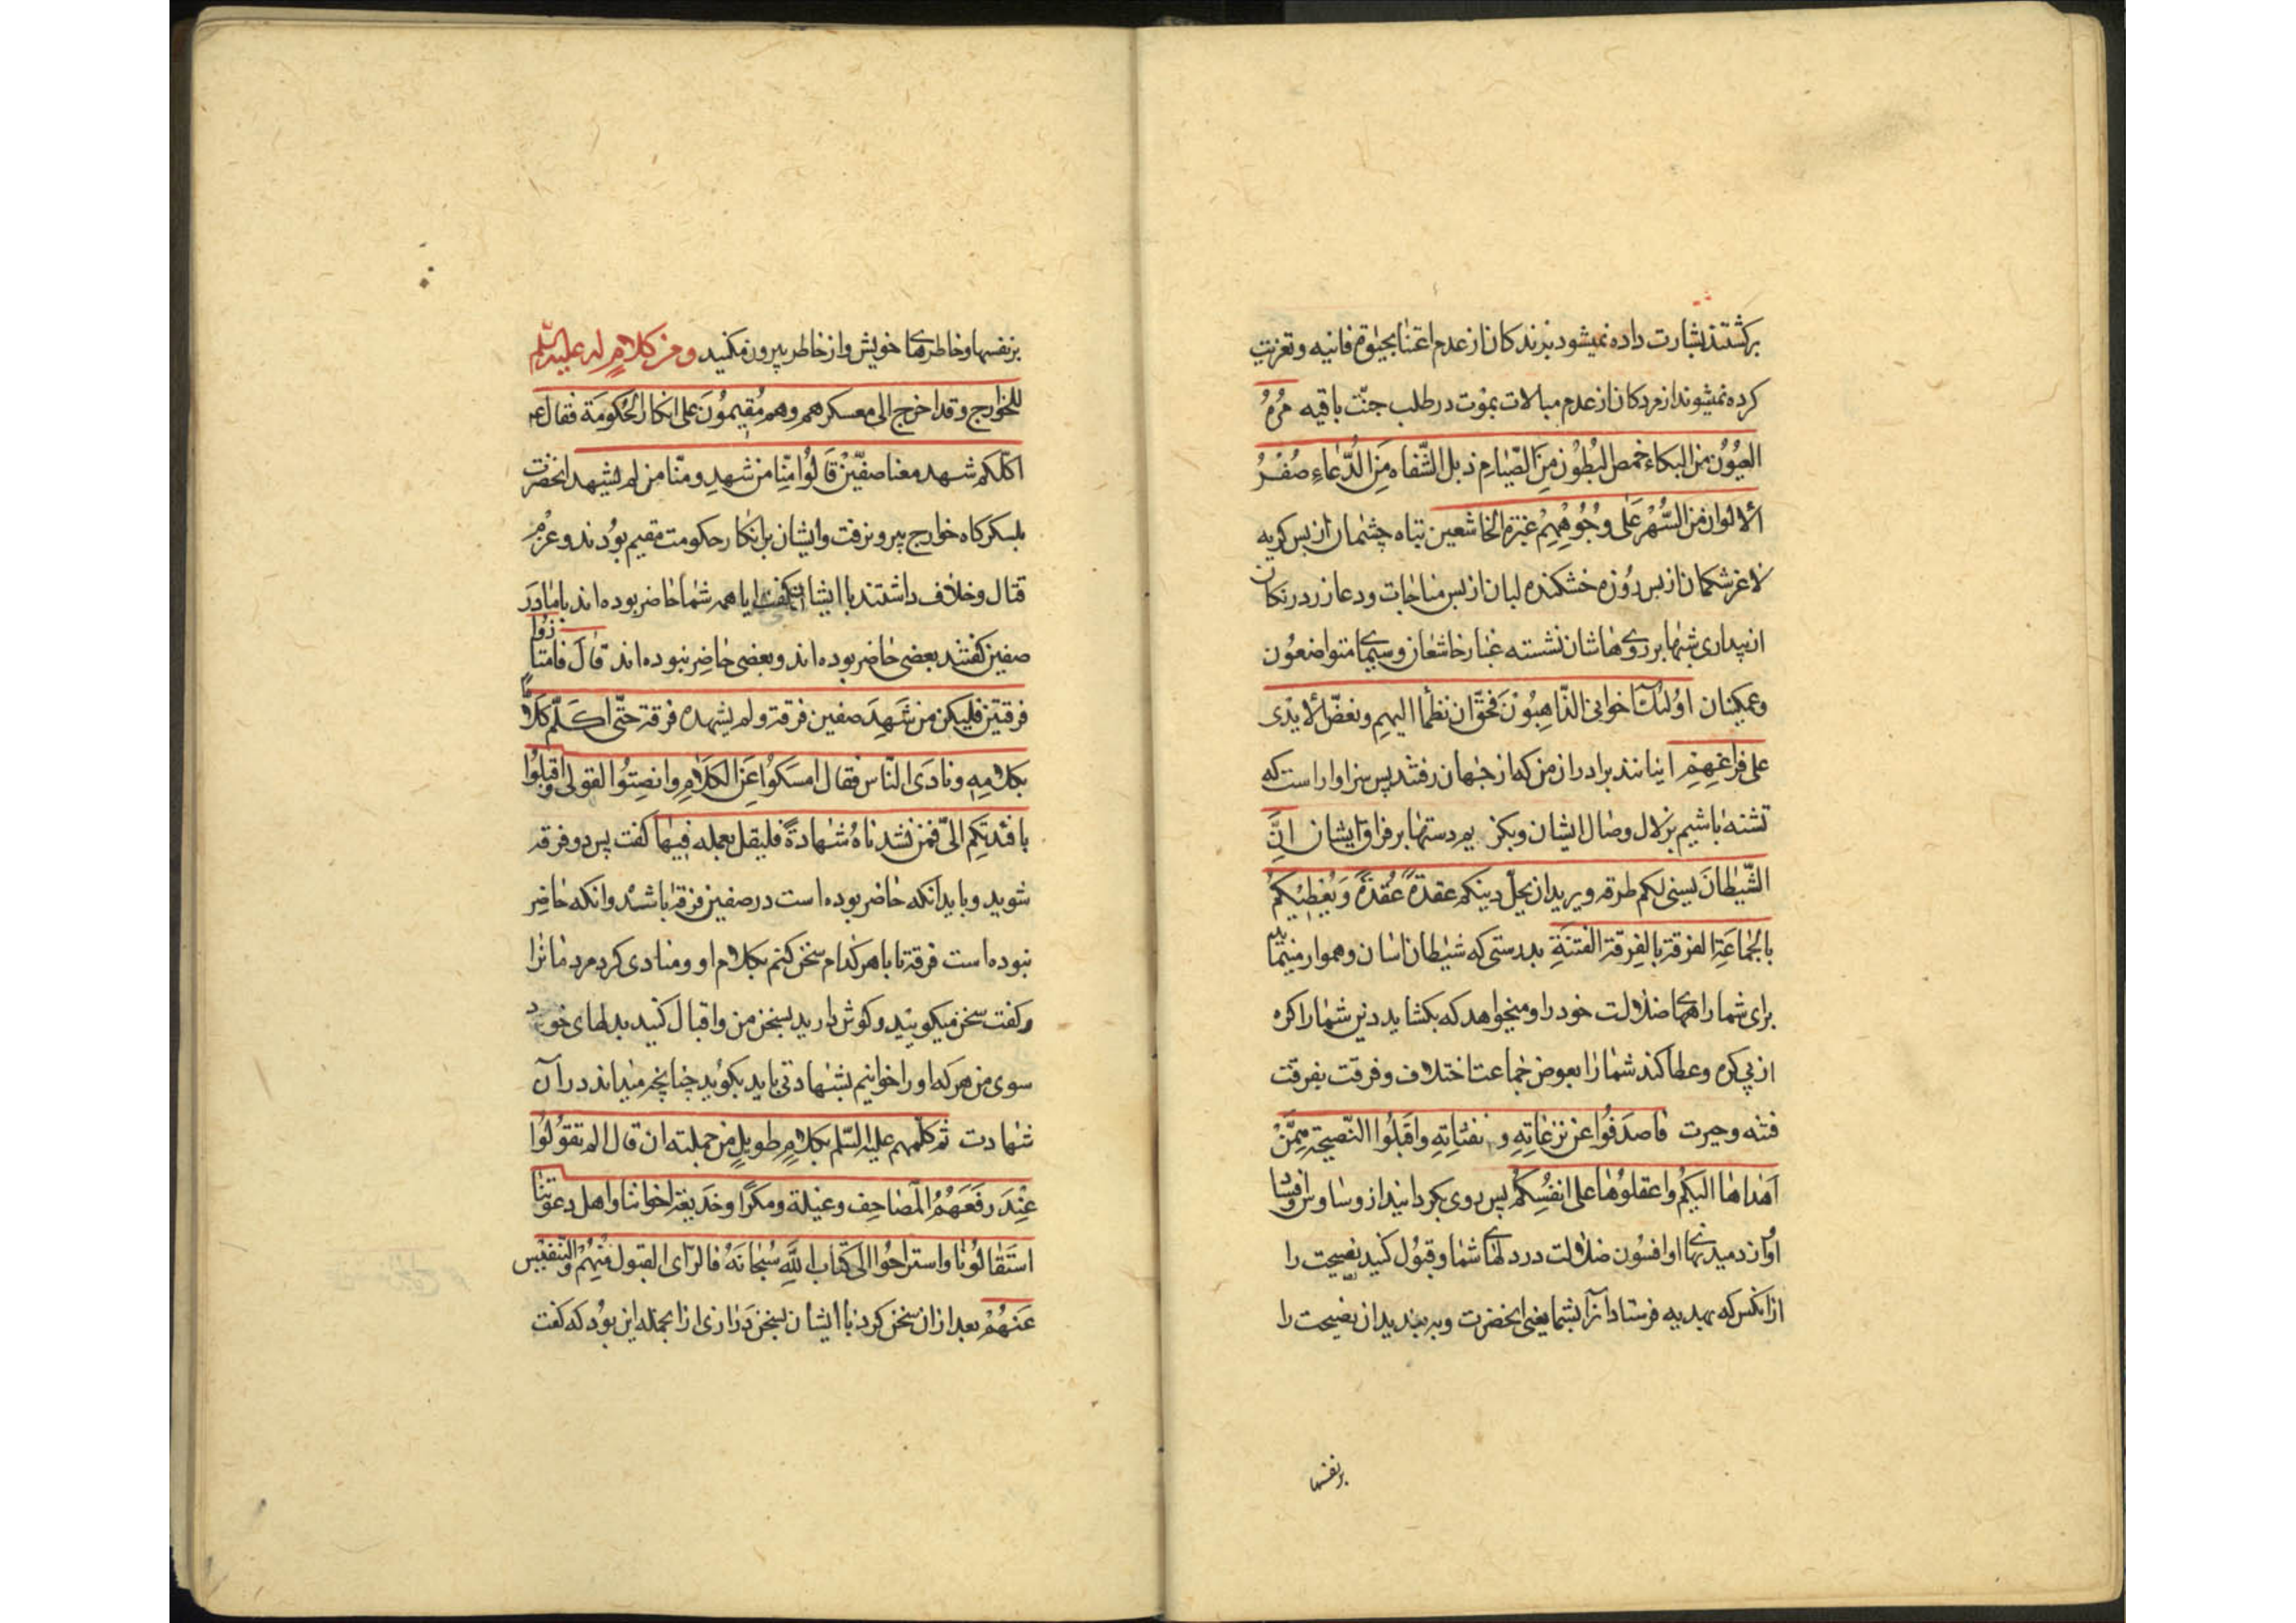 برکشتند بشارت داده نمیشود بزندکان از عدم اعتنا بحیوة فانیه و تعزیت
کرده نمیشوند از مردکان از عدم مبالات بموت در طلب جنّت باقیه مُرهُ
العیُوُن من البکاء خمص البُطوُن مِنَ الصّیام ذبل الشّفاه مِنَ الدُّعاءِ صُفْرُ
الألوان من السّهر عَلی وجُوُهِهِمْ غبرة الخاشعین تباه چشمان از بس کریه
لاغر شکمان از بس روُزه خشکنده لبان از بس مناجات و دعا زرد رنکان
از بیداری شبها بر رویهاشان نشسته غبار خاشعان و سیمای متواضعوُن
و غمکینان اوُلئک اخوانی الذّاهِبوُنَ فحقّ ان نظمأ الیهم و نعضّ الأیدی
علی فراقهِمْ اینانند برادران من که از جهان رفتند پس سزاوار است که
تشنه باشیم بزلال وصال ایشان و بکزیم دستها بر فراق ایشان انَّ
الشّیطانَ یسنی لکم طرقه و یرید ان یحلّ دینکم عقدةً عُقدةً وَیُعْطِیَکُمْ
بالجَماعَةِ الفرقة بالفِرقة الفتنَةِ بدرستی که شیطان اسان و هموار مینماید
برای شما راههای ضلالت خود را و میخواهد که بکشاید دین شما را کره
از پی کره و عطا کند شما را بعوض جماعت اختلاف و فرقت بفرقت
فتنه و حیرت فاصدَفُوا عن نزغاتِهِ و نفثاتِهِ و اقبَلُوا النّصیحة مِمَّنْ
اَهْداها الیکُمْ و اعقلوُها علی انفُسِکُمْ پس روی بکردانید از وساوس و افساد
او و از دمیدنهای او افسوُن ضلالت در دلهای شما و قبوُل کنید نصیحت را
از انکس که بهدیه فرستاد آنرا بشما یعنی انحضرت و به بندید ان نصیحت را
بر نفسها
بر نفسها و خاطرهای خویش و از خاطر بیرون مکنید و من کلامٍ له علیه السّلم
للخوارج و قد اخرج الی معسکرهم و هم مُقیموُنَ علی انکار الحُکومَة فقال ع
اکلّکم شهد معنا صفّینْ قَالوُا مِنّا من شهدِ و منّا من لم یشهد انحضرت
بلسکرکاه خوارج بیرون رفت و ایشان بر انکار حکومت مقیم بوُدند و عزم
قتال و خلاف داشتند با ایشان کفت ایا همه شما حاضر بوده‌اند با ما در
صفین کفتند بعضی حاضر بوده‌اند و بعضی حاضِر نبوده‌اند قال فامتازوُا
فرقتین فلیکن من شَهِدَ صفین فرقة و لم یشهده فرقة حتّی اکَلّم کلّاً
بکلامِهِ و نادَی النّاس فقال امسَکوُا عَنِ الکَلامِ و انصِتوُا لقولی و اقبلوُا
بافئدتکِم الیّ فمن نشدناهُ شهادةً فلیقل بعلمه فیها کفت پس دو فرقه
شوید و باید آنکه حاضر بوده است در صفین فرقه باشد و انکه حاضِر
نبوده است فرقه تا با هر کدام سخن کنم بکلام او و منادی کرد مردمانرا
و کفت سخن میکویید و کوش دارید بسخن من و اقبال کنید بدلهای خود
سوی من هر که او را خوانیم بشهادتی باید بکوُید چنانچه میداند در آن
شهادت ثم کلّمهم علیه السّلم بکلامٍ طویلٍ من جملته ان قال الم تقوُلوُا
عِنْدَ رفَعَهُمُ المَصاحِف و غیلة و مکرًا و خَدیعة اخواننا و اهل دعوتنا
استَقالوُنا و استراحُوا الی کتاب اللَّهِ سُبحانَهُ فالرّای القبول مِنْهُمْ و التّنفیس
عَنهُمْ بعد از ان سخن کرد با ایشان بسخن دَرازی از انجمله این بوُد که کفت